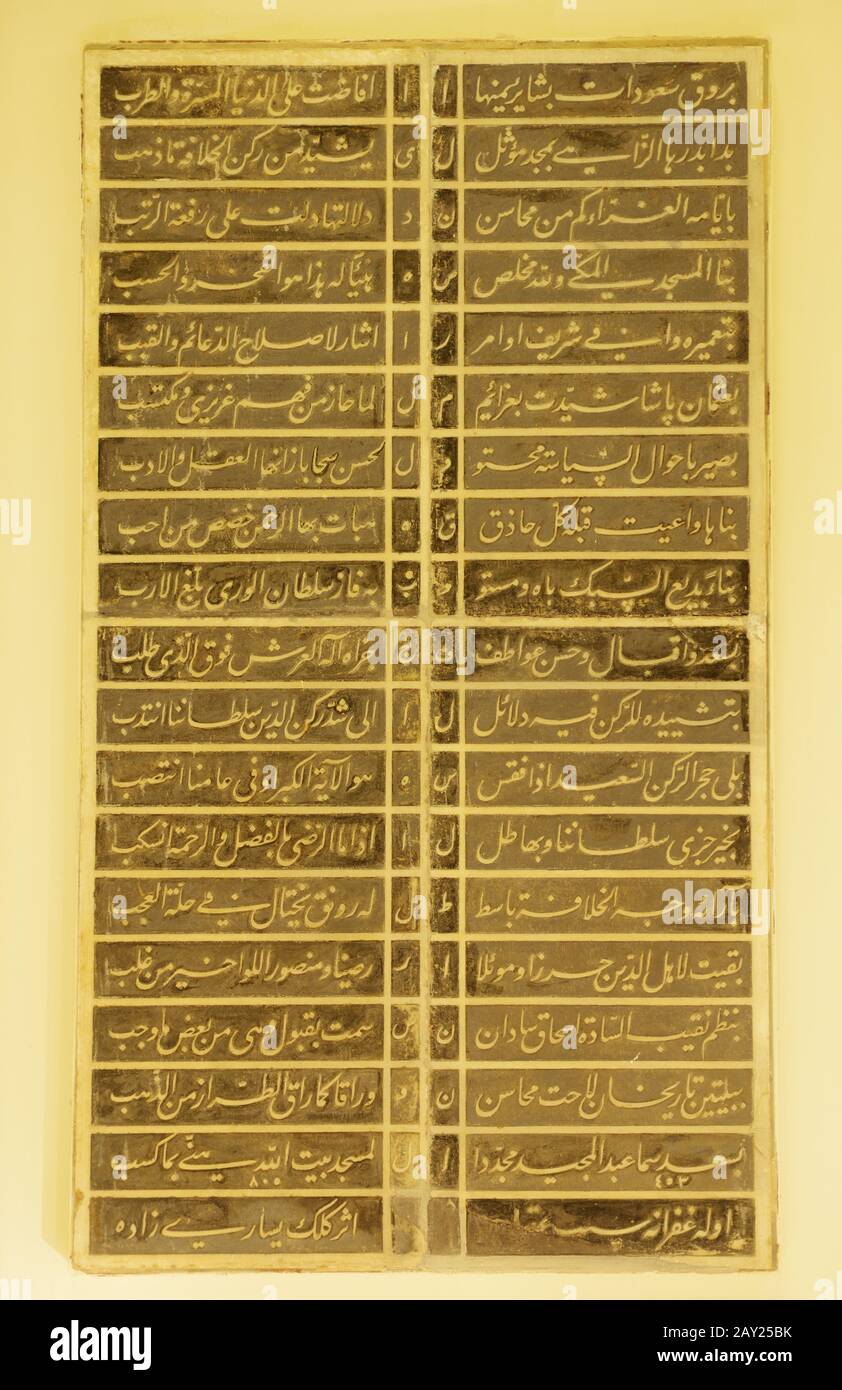 بروق سعودات بشاير يمنها ا ا افاضت على الدنيا المسرة والطرب
بدا بدرها الزاهي بمجد موثل ل ى يشيد من ركن الخلافة ما ذهب
بايامه الغراء كم من محاسن ن د دلالتها دلت على رفعة الرتب
بنا المسجد المكي وقد مخلص ه هنيأ له هذا هو الفخر والحسب
بتعميره وافى شريف اوامر ر ا اشار لاصلاح الدعائم والقبب
بعثمان پاشا شيدت بعزائم م ل لما حاز من فهم غريزي ومكتسب
بصير باحوال السياسة محتو ل لحسن سجايا زانها العقل والادب
بناها واعيت قبله كل حاذق ق ه هبات بها الرحمن خصص من احب
بناء بديع السبك باه ومستو ب به فاز سلطان الورى بلغ الارب
بسعد واقبال وحسن عواطف جزاه اله العرش فوق الذي طلب
بتشييده للركن فيه دلائل ل ا الى شد ركن الدين سلطاننا انتدب
بلى حجر الركن السعيد اذا فقس س ه هو الآية الكبرى وفي عامنا انتصب
بخير جزي سلطاننا وبها طل ل ا اذا ما الرضى بالفضل والرحمة انسكب
بآرائه وجه الخلافة باسط ط ل له رونق يختال في حلة العجب
بقيت لاهل الدين حرزا وموئلا ا ر رصينا ومنصور اللوا خير من غلب
بنظم نقيب السادة اسحاق شادان ن س سمت بقبول وهي من بعض ما وجب
ببيتين تاريخان لاحت محاسن ن و وراقا كما راق الطراز من الذهب
بسعد سما عبد المجيد مجددا ا ل لمسجد بيت الله يبنى بما كسب
٤٠٢ ٨٠٠
اثر كلك يساري زاده
alamy
Image ID: 2AY25BK
www.alamy.com